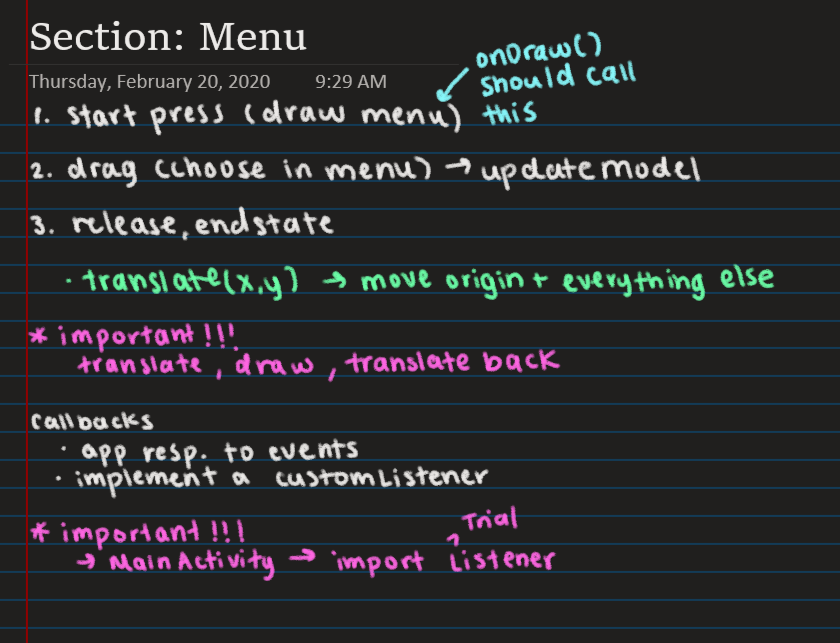 Section: Menu
Thursday, February 20, 2020 9:29 AM
onDraw()
should call
this
1. start press (draw menu)
2. drag (choose in menu) → updatemodel
3. release, endstate
· translate(x,y) → move origin + everything else
* important!!!
translate, draw, translate back
Callbacks
· app resp. to events
· implement a customListener
* important!!!
Trial
→ MainActivity → import ^ Listener